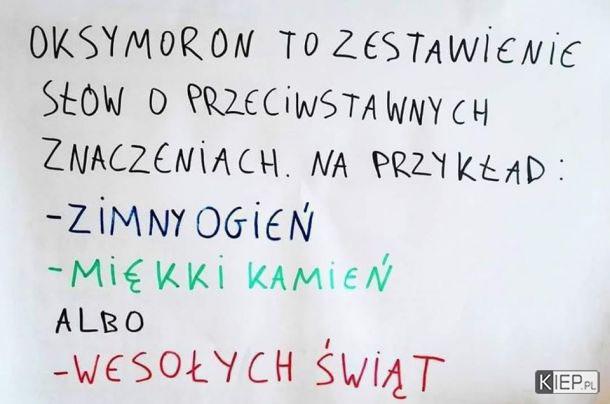 OKSYMORON TO ZESTAWIENIE
SŁÓW O PRZECIWSTAWNYCH
ZNACZENIACH. NA PRZYKŁAD:
-ZIMNY OGIEŃ
-MIĘKKI KAMIEŃ
ALBO
-WESOŁYCH ŚWIĄT
KIEP.PL